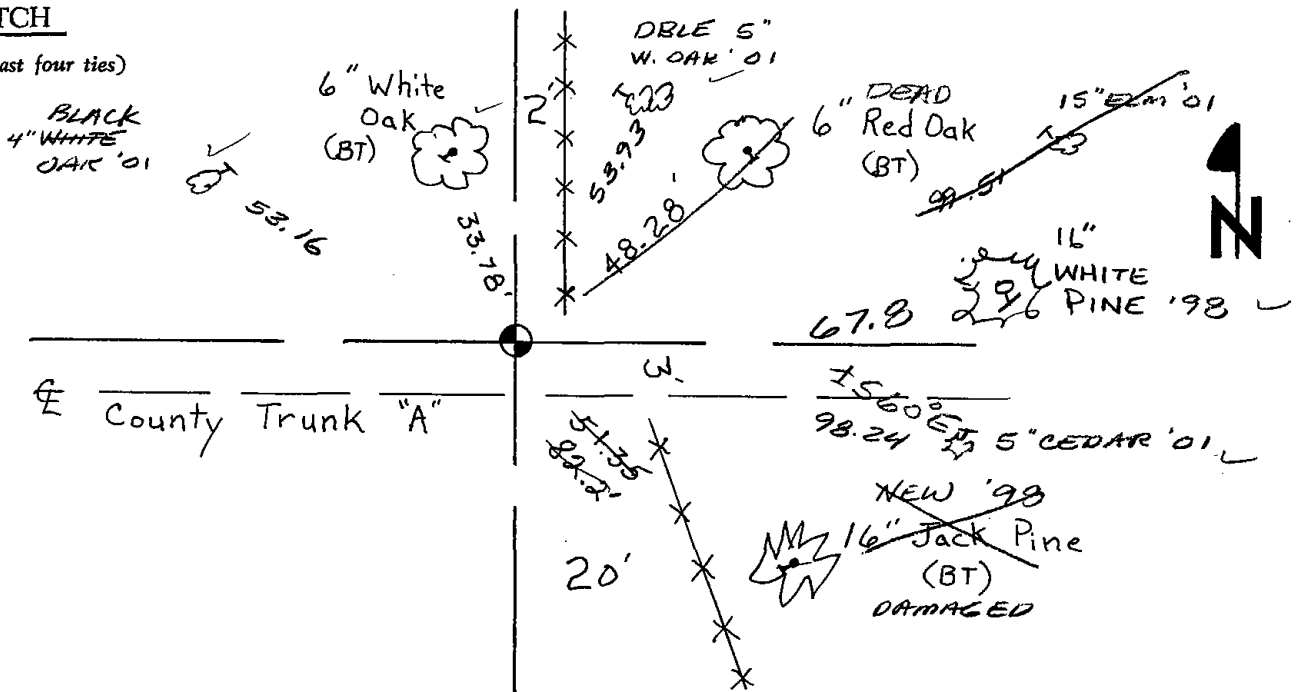 TCH
ast four ties)
BLACK
4" WHITE
OAK '01
53.16
6" White
Oak
(BT)
33.78'
2'
DBLE 5"
W. OAK '01
53.93
48.28'
6" DEAD
Red Oak
(BT)
15" ELM '01
99.51
N
16"
WHITE
PINE '98
67.8
3'
℄ County Trunk "A"
±S60°E
98.24
5" CEDAR '01
51.35
82.2'
20'
NEW '98
16" Jack Pine
(BT)
DAMAGED